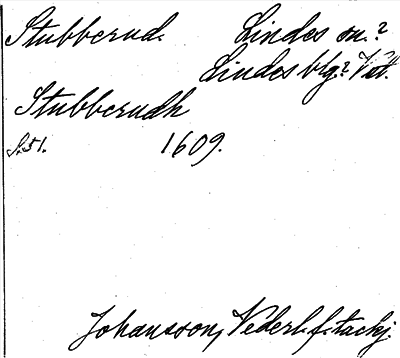 Stubberud. Lindes sn.?
Lindes blg.? Vstm.
Stubberudh
S. 51. 1609.
Johansson, Nederl. f. tackj.